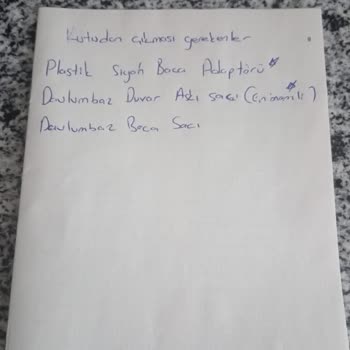 Kutudan çıkması gerekenler
Plastik Siyah Baca Adaptörü
Davlumbaz Duvar Askı sacı (En önemli)
Davlumbaz Baca Sacı